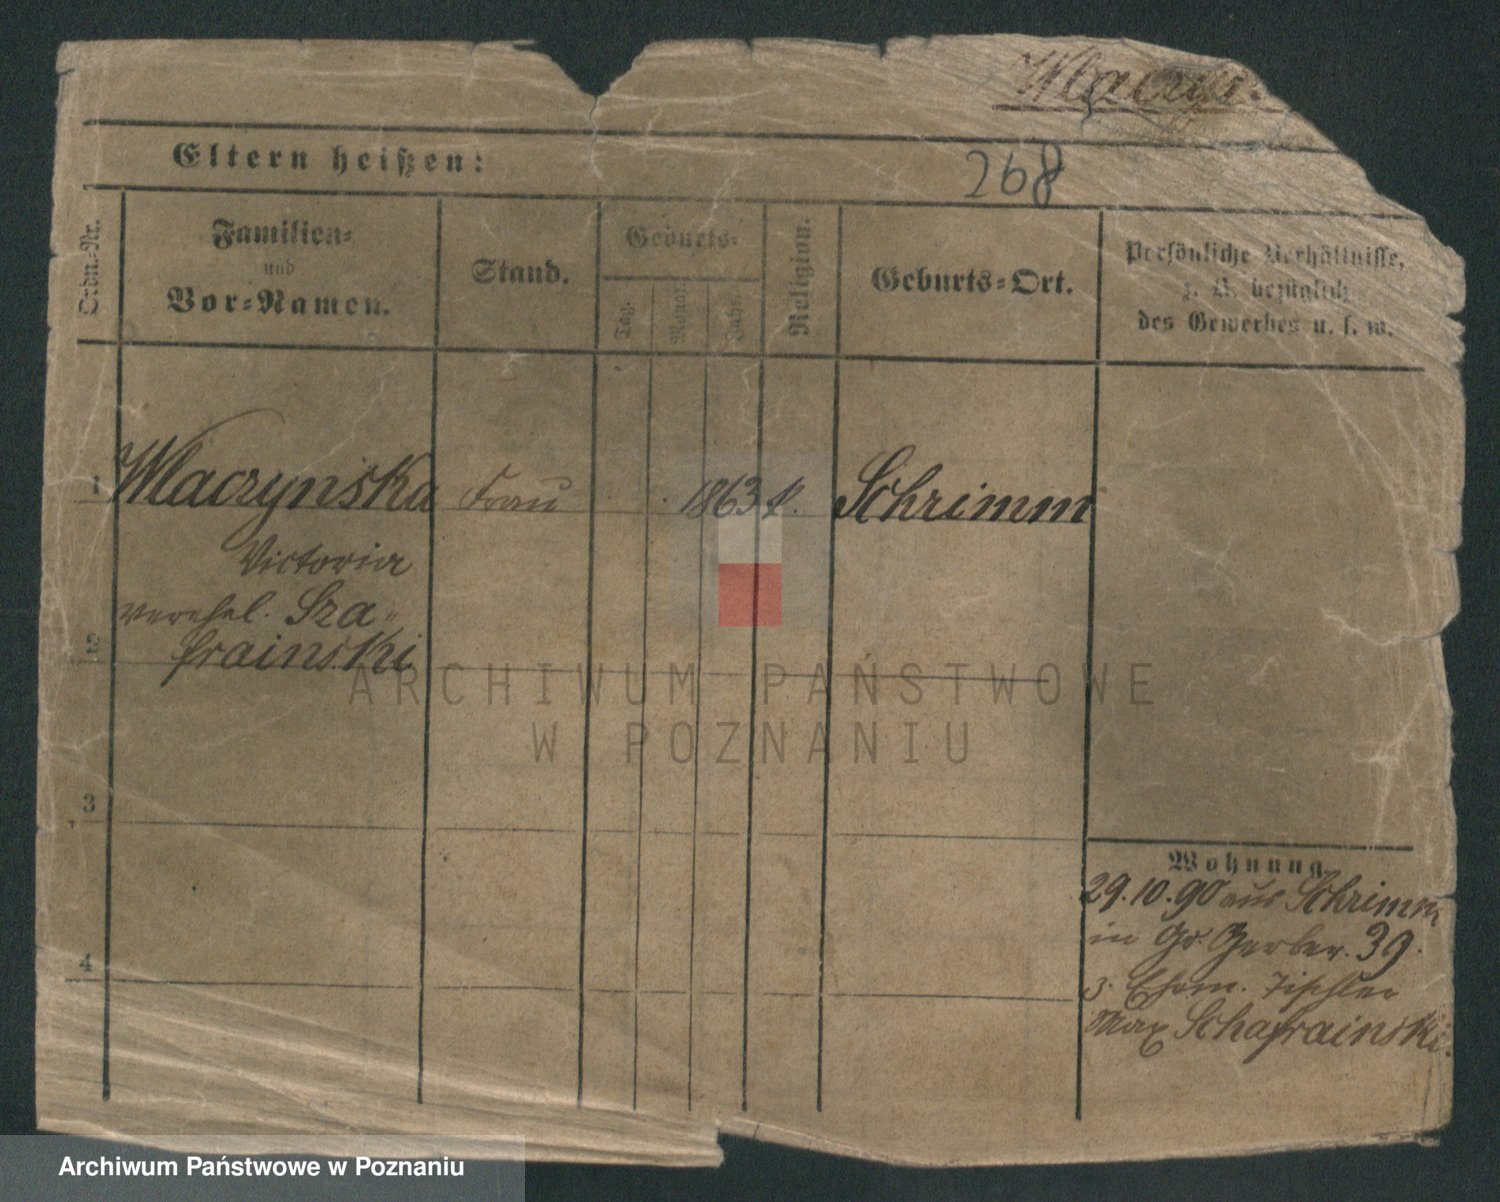 Wlaczyn.
Eltern heißen:
268
Ordn.-Nr.
Familien-
und
Vor-Namen.
Stand.
Geburts-
Tag.
Monat.
Jahr.
Religion.
Geburts-Ort.
Persönliche Verhältnisse,
z. B. bezüglich
des Gewerbes u. s. w.
1 Wlaczynska Frau 1863 k. Schrimm
Victoria
verehel. Sza-
frainski
2
3
4
Wohnung
29.10.90 aus Schrimm
in Gr. Gerber. 39.
z. Ehem. Tischler
Max Schafrainski.
ARCHIWUM PAŃSTWOWE
W POZNANIU
Archiwum Państwowe w Poznaniu